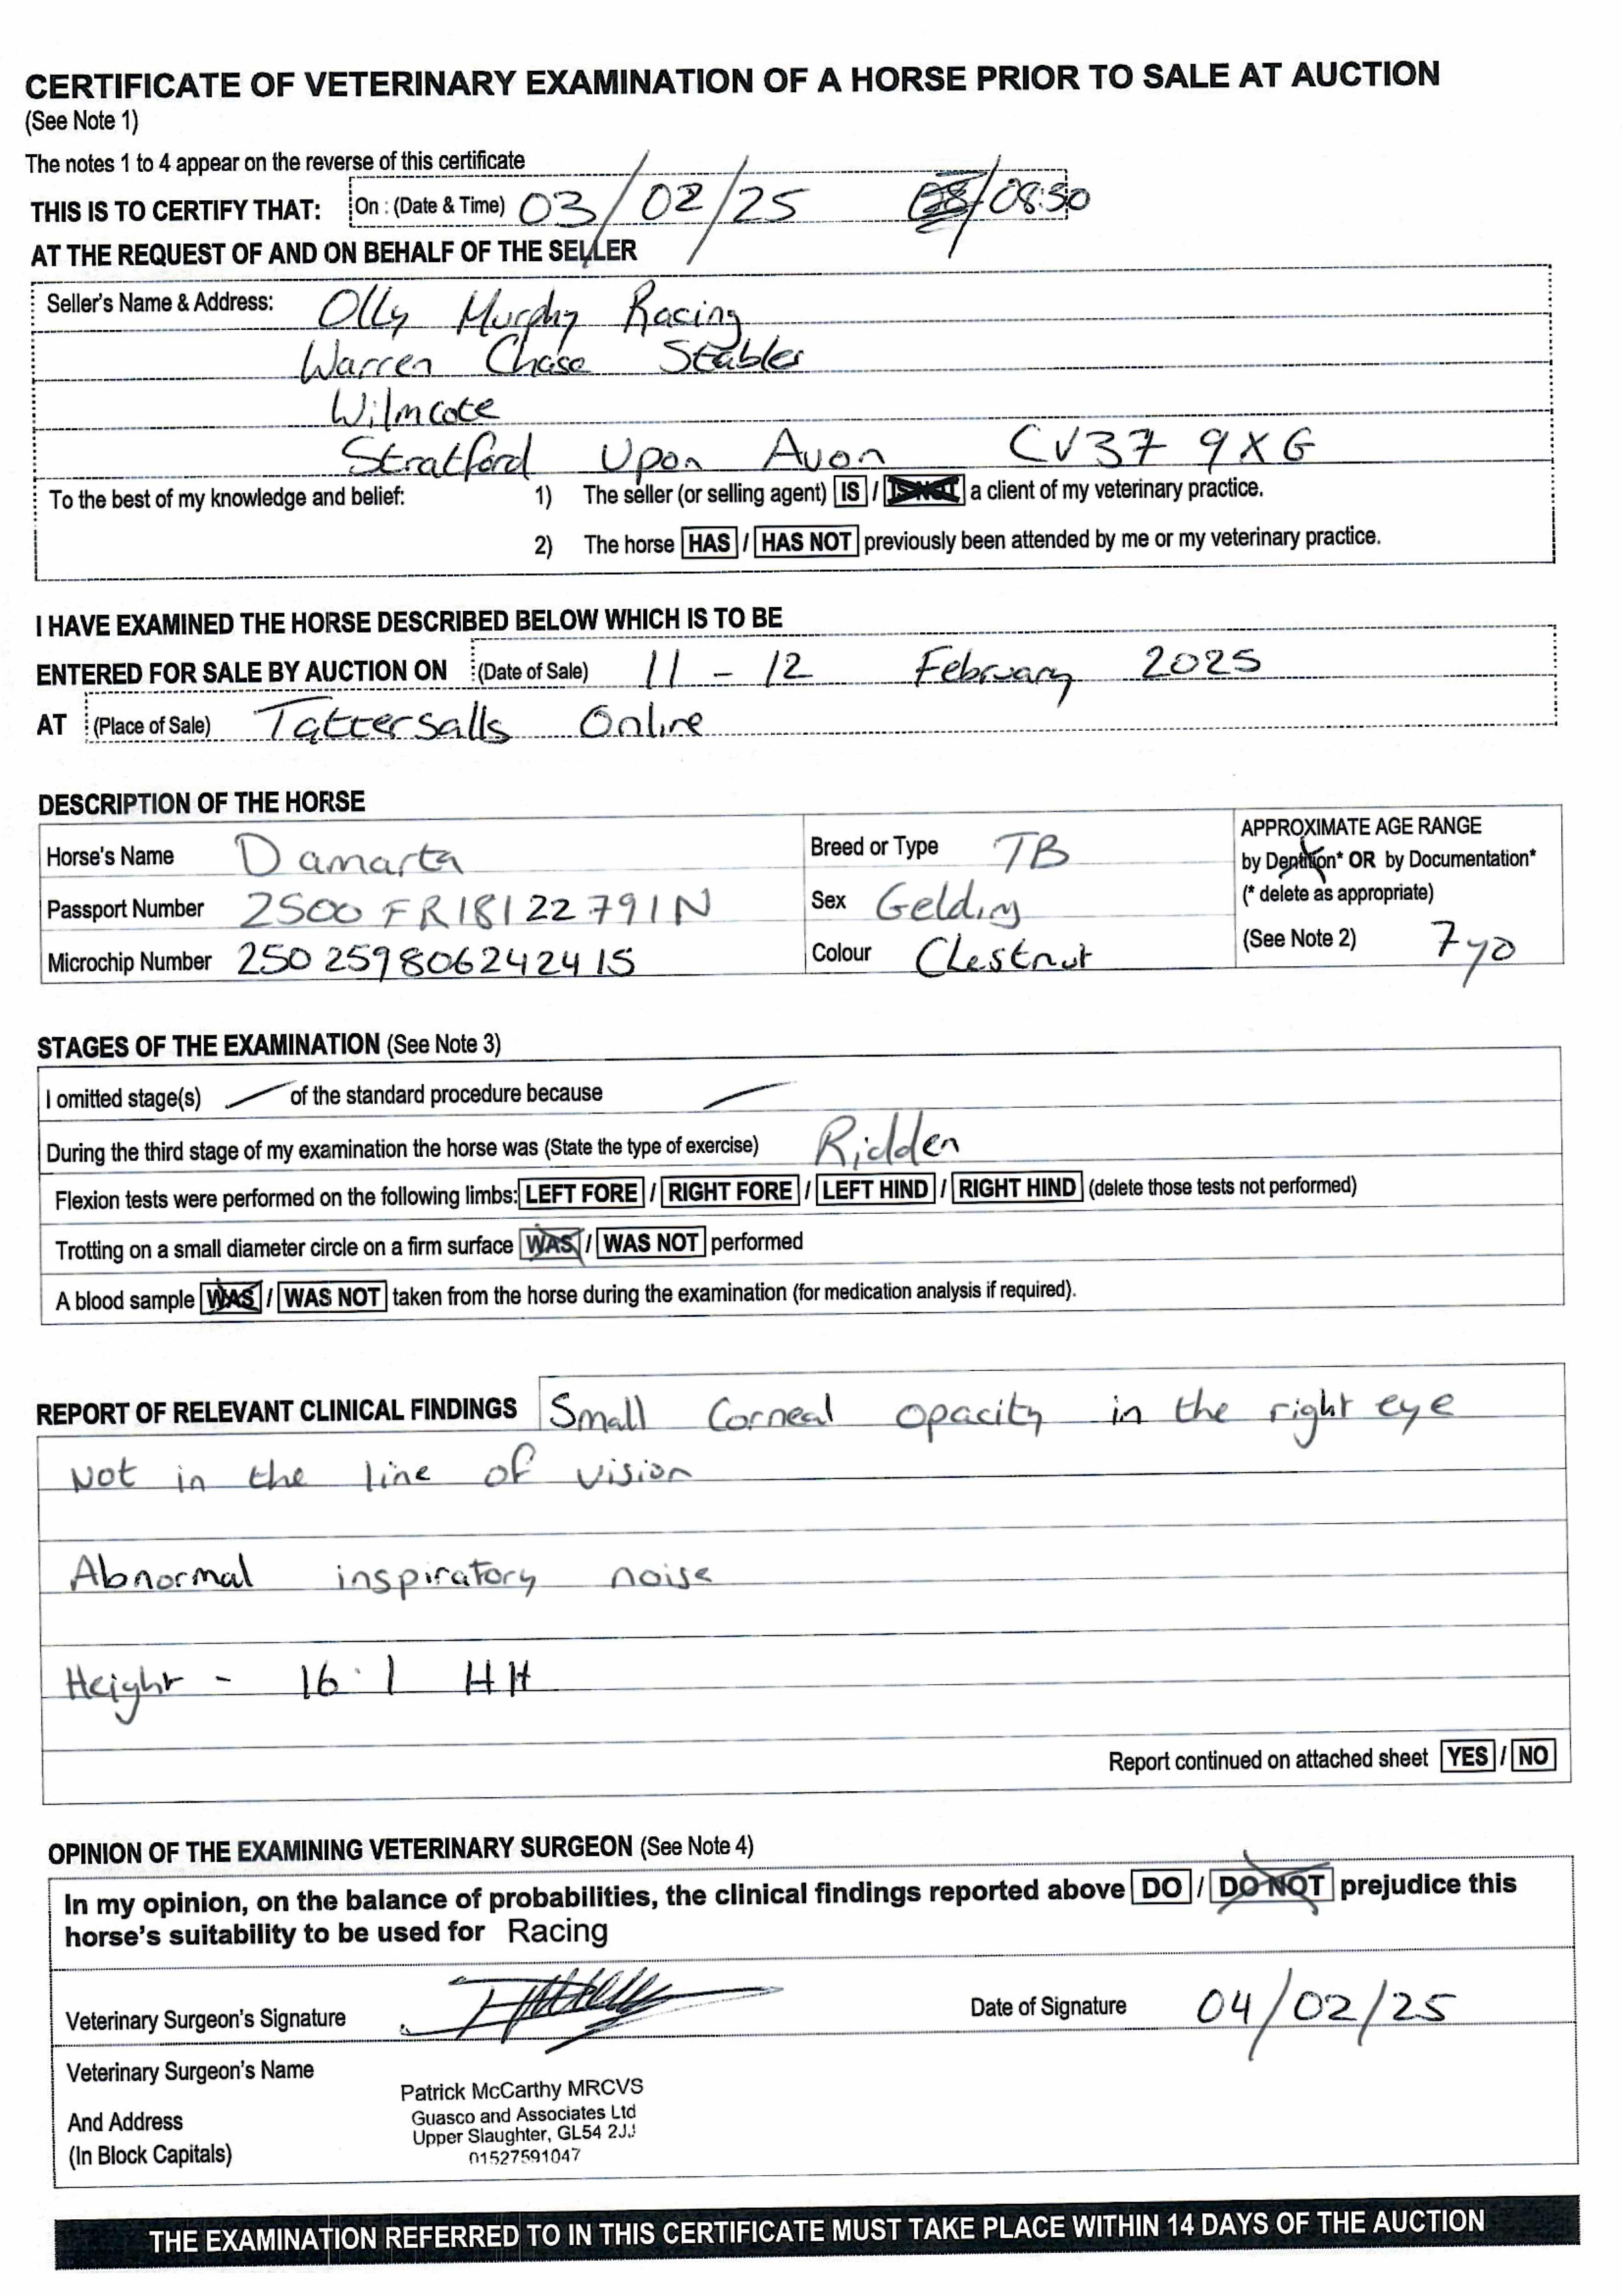 CERTIFICATE OF VETERINARY EXAMINATION OF A HORSE PRIOR TO SALE AT AUCTION
(See Note 1)
The notes 1 to 4 appear on the reverse of this certificate
THIS IS TO CERTIFY THAT: On : (Date & Time) 03/02/25 /08:30
AT THE REQUEST OF AND ON BEHALF OF THE SELLER
Seller's Name & Address: Olly Murphy Racing
Warren Chase Stables
Wilmcote
Stratford Upon Avon CV37 9XG
To the best of my knowledge and belief: 1) The seller (or selling agent) IS / IS NOT a client of my veterinary practice.
2) The horse HAS / HAS NOT previously been attended by me or my veterinary practice.
I HAVE EXAMINED THE HORSE DESCRIBED BELOW WHICH IS TO BE
ENTERED FOR SALE BY AUCTION ON (Date of Sale) 11 - 12 February 2025
AT (Place of Sale) Tattersalls Online
DESCRIPTION OF THE HORSE
Horse's Name Damarta Breed or Type TB APPROXIMATE AGE RANGE
by Dentition* OR by Documentation*
Passport Number 2500FR18122791N Sex Gelding (* delete as appropriate)
Microchip Number 250259806242415 Colour Chestnut (See Note 2) 7yo
STAGES OF THE EXAMINATION (See Note 3)
I omitted stage(s) — of the standard procedure because —
During the third stage of my examination the horse was (State the type of exercise) Ridden
Flexion tests were performed on the following limbs: LEFT FORE / RIGHT FORE / LEFT HIND / RIGHT HIND (delete those tests not performed)
Trotting on a small diameter circle on a firm surface WAS / WAS NOT performed
A blood sample WAS / WAS NOT taken from the horse during the examination (for medication analysis if required).
REPORT OF RELEVANT CLINICAL FINDINGS Small Corneal opacity in the right eye
Not in the line of vision
Abnormal inspiratory noise
Height - 16.1 HH
Report continued on attached sheet YES / NO
OPINION OF THE EXAMINING VETERINARY SURGEON (See Note 4)
In my opinion, on the balance of probabilities, the clinical findings reported above DO / DO NOT prejudice this
horse's suitability to be used for Racing
Veterinary Surgeon's Signature Date of Signature 04/02/25
Veterinary Surgeon's Name
And Address
(In Block Capitals)
Patrick McCarthy MRCVS
Guasco and Associates Ltd
Upper Slaughter, GL54 2JJ
01527591047
THE EXAMINATION REFERRED TO IN THIS CERTIFICATE MUST TAKE PLACE WITHIN 14 DAYS OF THE AUCTION